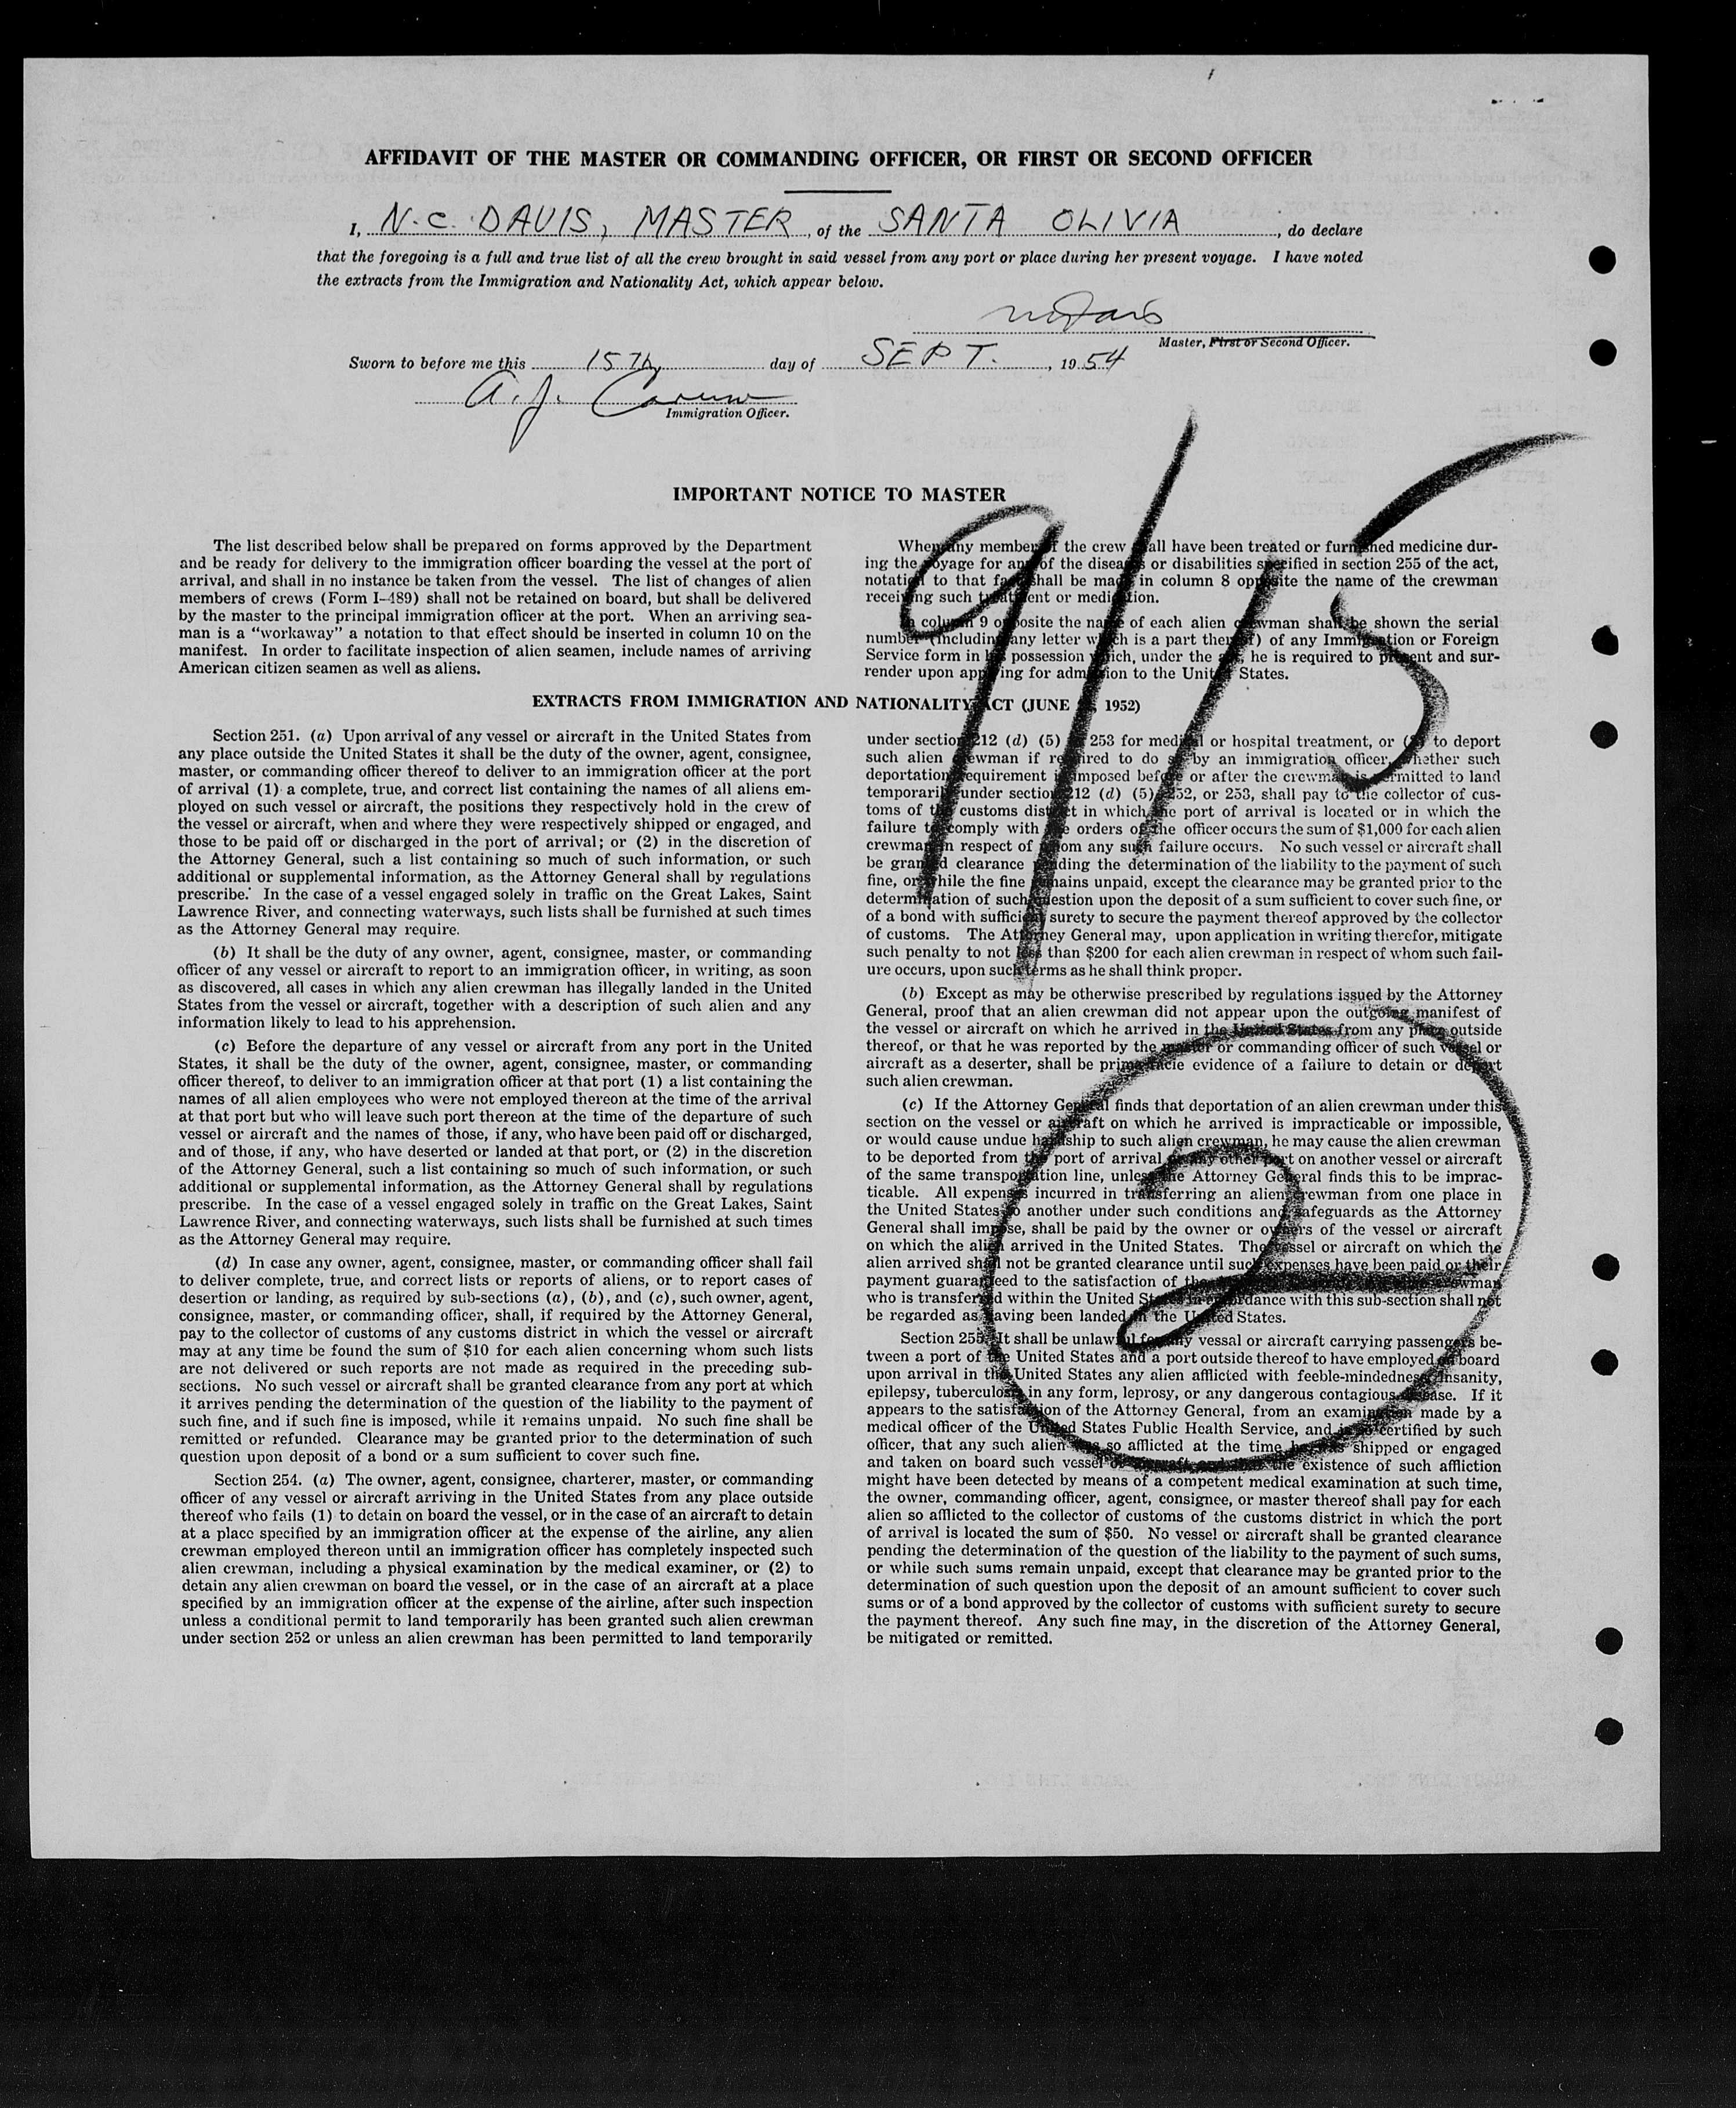 AFFIDAVIT OF THE MASTER OR COMMANDING OFFICER, OR FIRST OR SECOND OFFICER
I, N. C. DAVIS, MASTER, of the SANTA OLIVIA, do declare
that the foregoing is a full and true list of all the crew brought in said vessel from any port or place during her present voyage. I have noted
the extracts from the Immigration and Nationality Act, which appear below.
Master, First or Second Officer.
Sworn to before me this 15th day of SEPT., 1954
A. J. Caruso
Immigration Officer.
9/15
2
IMPORTANT NOTICE TO MASTER
The list described below shall be prepared on forms approved by the Department
and be ready for delivery to the immigration officer boarding the vessel at the port of
arrival, and shall in no instance be taken from the vessel. The list of changes of alien
members of crews (Form I-489) shall not be retained on board, but shall be delivered
by the master to the principal immigration officer at the port. When an arriving sea-
man is a “workaway” a notation to that effect should be inserted in column 10 on the
manifest. In order to facilitate inspection of alien seamen, include names of arriving
American citizen seamen as well as aliens.
When any member of the crew shall have been treated or furnished medicine dur-
ing the voyage for any of the diseases or disabilities specified in section 255 of the act,
notation to that fact shall be made in column 8 opposite the name of the crewman
receiving such treatment or medication.
In column 9 opposite the name of each alien crewman shall be shown the serial
number (including any letter which is a part thereof) of any Immigration or Foreign
Service form in his possession which, under the act, he is required to present and sur-
render upon applying for admission to the United States.
EXTRACTS FROM IMMIGRATION AND NATIONALITY ACT (JUNE 1952)
Section 251. (a) Upon arrival of any vessel or aircraft in the United States from
any place outside the United States it shall be the duty of the owner, agent, consignee,
master, or commanding officer thereof to deliver to an immigration officer at the port
of arrival (1) a complete, true, and correct list containing the names of all aliens em-
ployed on such vessel or aircraft, the positions they respectively hold in the crew of
the vessel or aircraft, when and where they were respectively shipped or engaged, and
those to be paid off or discharged in the port of arrival; or (2) in the discretion of
the Attorney General, such a list containing so much of such information, or such
additional or supplemental information, as the Attorney General shall by regulations
prescribe. In the case of a vessel engaged solely in traffic on the Great Lakes, Saint
Lawrence River, and connecting waterways, such lists shall be furnished at such times
as the Attorney General may require.
(b) It shall be the duty of any owner, agent, consignee, master, or commanding
officer of any vessel or aircraft to report to an immigration officer, in writing, as soon
as discovered, all cases in which any alien crewman has illegally landed in the United
States from the vessel or aircraft, together with a description of such alien and any
information likely to lead to his apprehension.
(c) Before the departure of any vessel or aircraft from any port in the United
States, it shall be the duty of the owner, agent, consignee, master, or commanding
officer thereof, to deliver to an immigration officer at that port (1) a list containing the
names of all alien employees who were not employed thereon at the time of the arrival
at that port but who will leave such port thereon at the time of the departure of such
vessel or aircraft and the names of those, if any, who have been paid off or discharged,
and of those, if any, who have deserted or landed at that port, or (2) in the discretion
of the Attorney General, such a list containing so much of such information, or such
additional or supplemental information, as the Attorney General shall by regulations
prescribe. In the case of a vessel engaged solely in traffic on the Great Lakes, Saint
Lawrence River, and connecting waterways, such lists shall be furnished at such times
as the Attorney General may require.
(d) In case any owner, agent, consignee, master, or commanding officer shall fail
to deliver complete, true, and correct lists or reports of aliens, or to report cases of
desertion or landing, as required by sub-sections (a), (b), and (c), such owner, agent,
consignee, master, or commanding officer, shall, if required by the Attorney General,
pay to the collector of customs of any customs district in which the vessel or aircraft
may at any time be found the sum of $10 for each alien concerning whom such lists
are not delivered or such reports are not made as required in the preceding sub-
sections. No such vessel or aircraft shall be granted clearance from any port at which
it arrives pending the determination of the question of the liability to the payment of
such fine, and if such fine is imposed, while it remains unpaid. No such fine shall be
remitted or refunded. Clearance may be granted prior to the determination of such
question upon deposit of a bond or a sum sufficient to cover such fine.
Section 254. (a) The owner, agent, consignee, charterer, master, or commanding
officer of any vessel or aircraft arriving in the United States from any place outside
thereof who fails (1) to detain on board the vessel, or in the case of an aircraft to detain
at a place specified by an immigration officer at the expense of the airline, any alien
crewman employed thereon until an immigration officer has completely inspected such
alien crewman, including a physical examination by the medical examiner, or (2) to
detain any alien crewman on board the vessel, or in the case of an aircraft at a place
specified by an immigration officer at the expense of the airline, after such inspection
unless a conditional permit to land temporarily has been granted such alien crewman
under section 252 or unless an alien crewman has been permitted to land temporarily
under section 212 (d) (5) or 253 for medical or hospital treatment, or (3) to deport
such alien crewman if required to do so by an immigration officer, whether such
deportation requirement is imposed before or after the crewman is permitted to land
temporarily under section 212 (d) (5), 252, or 253, shall pay to the collector of cus-
toms of the customs district in which the port of arrival is located or in which the
failure to comply with the orders of the officer occurs the sum of $1,000 for each alien
crewman in respect of whom any such failure occurs. No such vessel or aircraft shall
be granted clearance pending the determination of the liability to the payment of such
fine, or while the fine remains unpaid, except the clearance may be granted prior to the
determination of such question upon the deposit of a sum sufficient to cover such fine, or
of a bond with sufficient surety to secure the payment thereof approved by the collector
of customs. The Attorney General may, upon application in writing therefor, mitigate
such penalty to not less than $200 for each alien crewman in respect of whom such fail-
ure occurs, upon such terms as he shall think proper.
(b) Except as may be otherwise prescribed by regulations issued by the Attorney
General, proof that an alien crewman did not appear upon the outgoing manifest of
the vessel or aircraft on which he arrived in the United States from any place outside
thereof, or that he was reported by the master or commanding officer of such vessel or
aircraft as a deserter, shall be prima facie evidence of a failure to detain or deport
such alien crewman.
(c) If the Attorney General finds that deportation of an alien crewman under this
section on the vessel or aircraft on which he arrived is impracticable or impossible,
or would cause undue hardship to such alien crewman, he may cause the alien crewman
to be deported from the port of arrival or any other port on another vessel or aircraft
of the same transportation line, unless the Attorney General finds this to be imprac-
ticable. All expenses incurred in transferring an alien crewman from one place in
the United States to another under such conditions and safeguards as the Attorney
General shall impose, shall be paid by the owner or owners of the vessel or aircraft
on which the alien arrived in the United States. The vessel or aircraft on which the
alien arrived shall not be granted clearance until such expenses have been paid or their
payment guaranteed to the satisfaction of the crewman
who is transferred within the United States in accordance with this sub-section shall not
be regarded as having been landed in the United States.
Section 255. It shall be unlawful for any vessal or aircraft carrying passengers be-
tween a port of the United States and a port outside thereof to have employed on board
upon arrival in the United States any alien afflicted with feeble-mindedness, insanity,
epilepsy, tuberculosis in any form, leprosy, or any dangerous contagious disease. If it
appears to the satisfaction of the Attorney General, from an examination made by a
medical officer of the United States Public Health Service, and is so certified by such
officer, that any such alien was so afflicted at the time he was shipped or engaged
and taken on board such vessel or aircraft and that the existence of such affliction
might have been detected by means of a competent medical examination at such time,
the owner, commanding officer, agent, consignee, or master thereof shall pay for each
alien so afflicted to the collector of customs of the customs district in which the port
of arrival is located the sum of $50. No vessel or aircraft shall be granted clearance
pending the determination of the question of the liability to the payment of such sums,
or while such sums remain unpaid, except that clearance may be granted prior to the
determination of such question upon the deposit of an amount sufficient to cover such
sums or of a bond approved by the collector of customs with sufficient surety to secure
the payment thereof. Any such fine may, in the discretion of the Attorney General,
be mitigated or remitted.